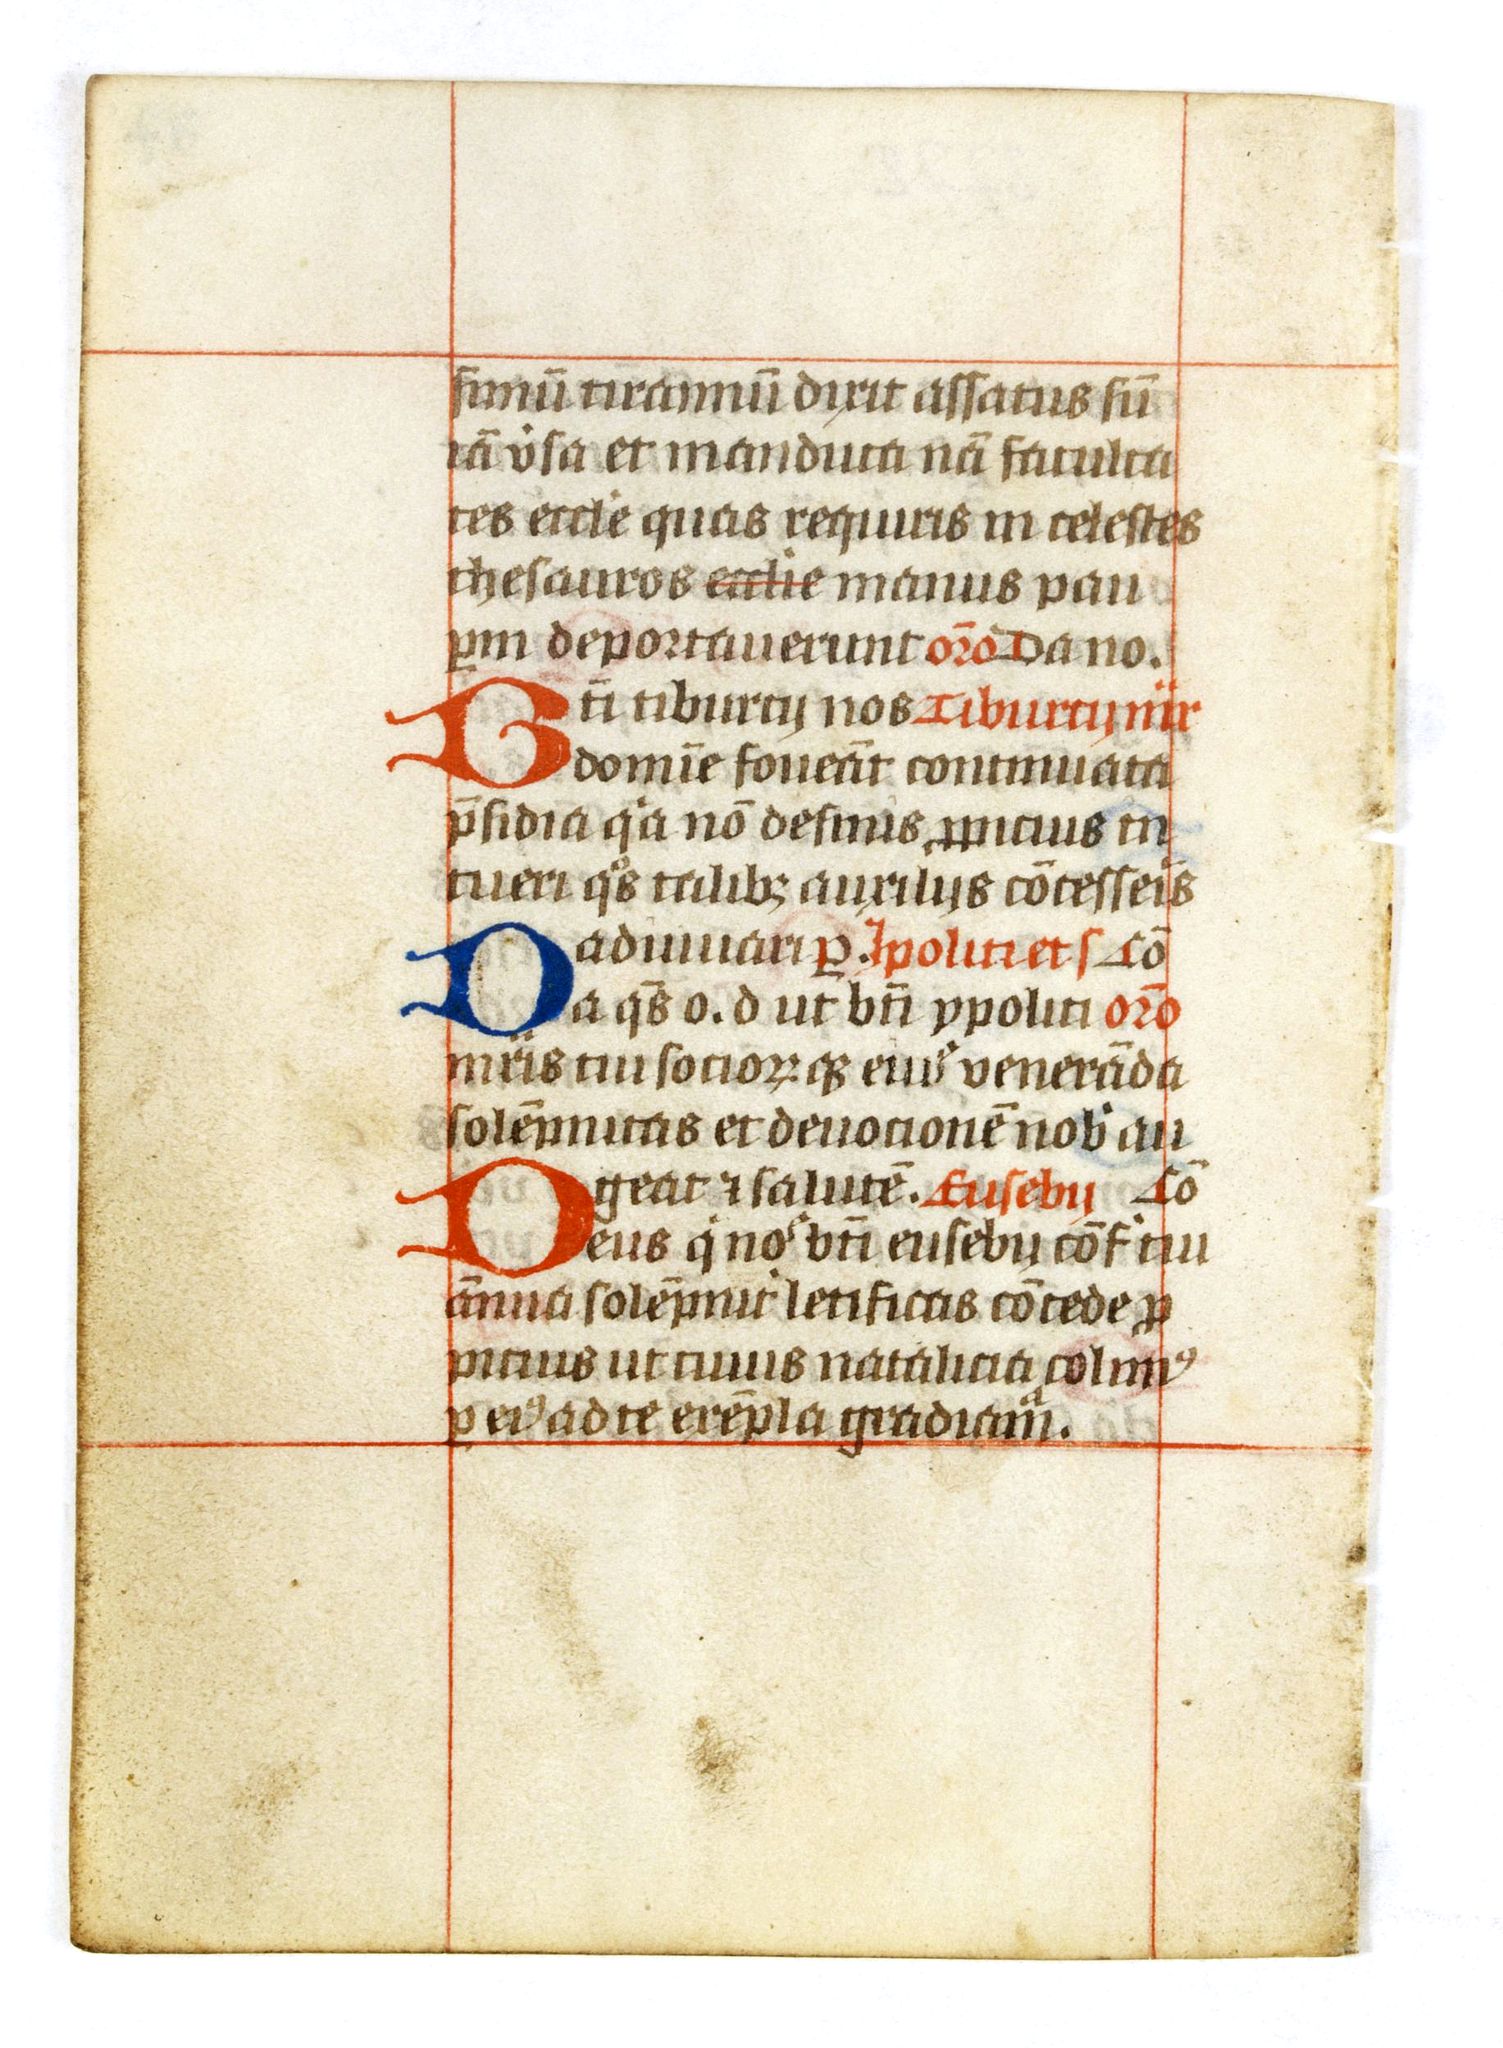 simū tirannū dixit assatus sū
iā v̓sa et manduca nā faculta
tes eccl̓ie quas requiris in celestes
thesauros ecclie manus pau
ꝑm deportauerunt or̄o Da no.
Bti̅ tiburcij nos Tiburcij mr̄ir
domīe foueāt continuata
p̄sidia qͥa nō desinis ꝓpicius in
tueri qͦs talibꝫ auxilijs cōcesseis̄
adiuuari ꝑ. Ipoliti et s Cō
Da qs̄ o. d ut bt̄i ypoliti or̄o
mr̄is tui socioꝝ qꝫ eiꝰ venerāda
solēpnitas et deuocionē nob̓ au
geat ⁊ salutē. Eusebij Cō
Deus qͥ noˢ bt̄i eusebij cōf̓ tui
ānua solēpnit̓ letificas cōcede ꝓ
picius ut cuius natalicia colimꝰ
ꝑ eiꝰ ad te exēpla gradiamͬ.